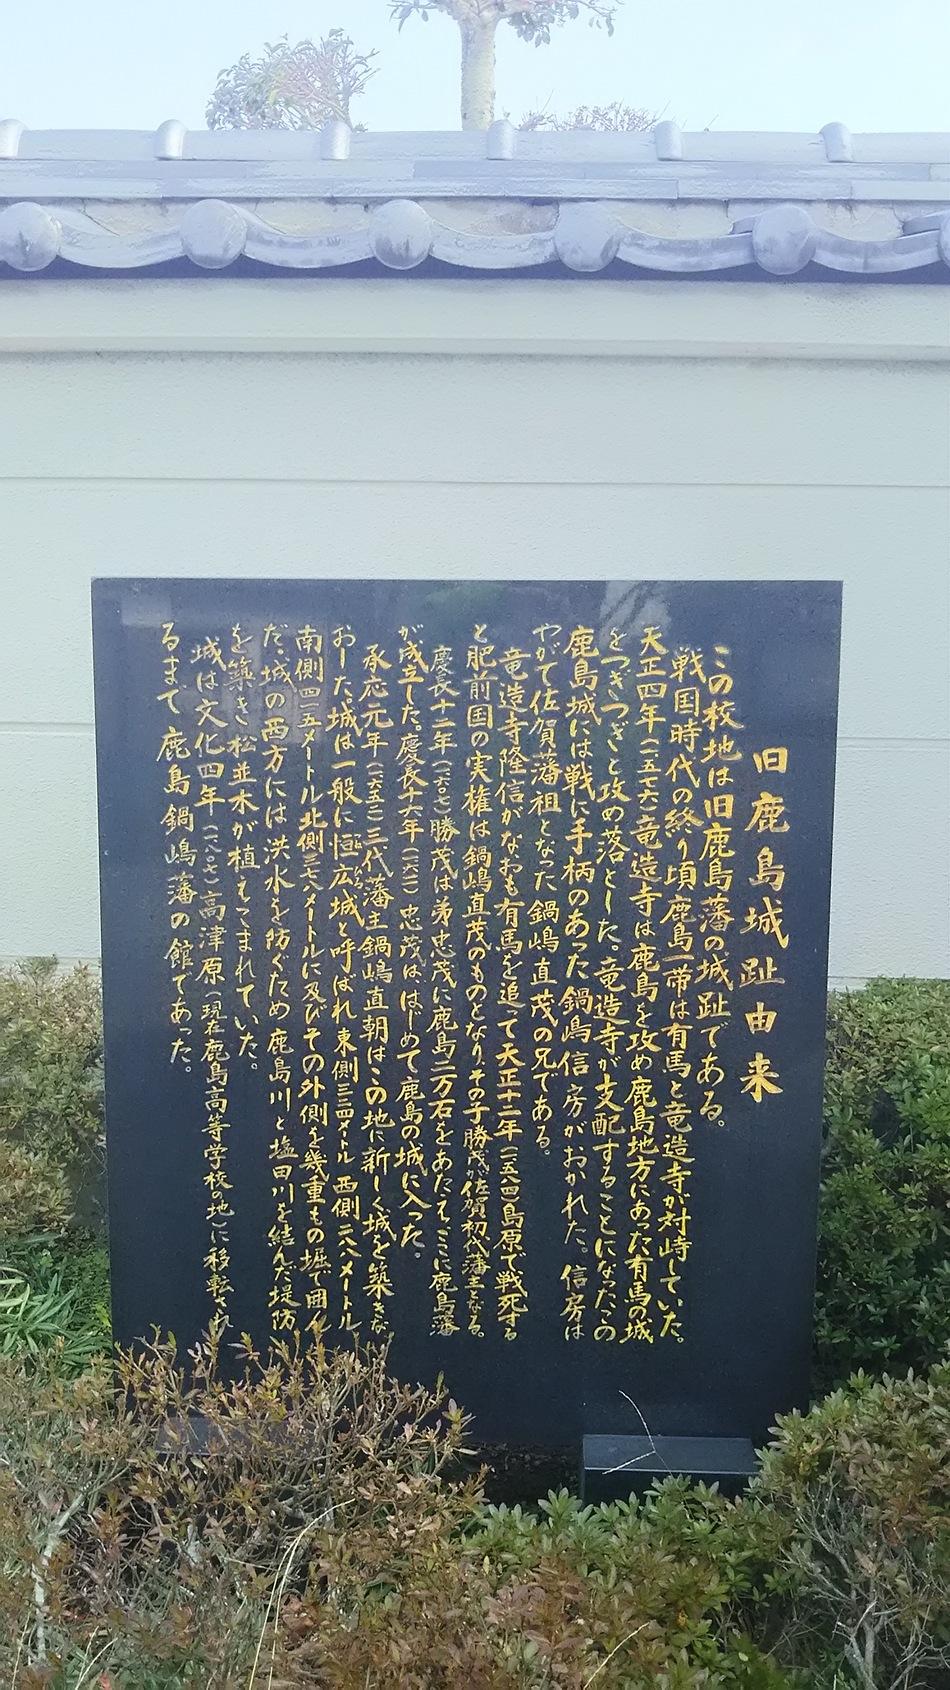 旧鹿島城趾由来
この校地は旧鹿島藩の城趾である。
戦国時代の終り頃鹿島一帯は有馬と竜造寺が対峙していた。
天正四年(一五七六)竜造寺は鹿島を攻め鹿島地方にあった有馬の城
をつぎつぎと攻め落とした。竜造寺が支配することになったこの
鹿島城には戦に手柄のあった鍋嶋信房がおかれた。信房は
やがて佐賀藩祖となった鍋嶋直茂の兄である。
竜造寺隆信がなおも有馬を追って天正十二年(一五八四)島原で戦死する
と肥前国の実権は鍋嶋直茂のものとなり、その子勝茂が佐賀初代藩主となる。
慶長十二年(一六〇七)勝茂は弟忠茂に鹿島二万石をあたえここに鹿島藩
が成立した。慶長十六年(一六一一)忠茂は、はじめて鹿島の城に入った。
承応元年(一六五二)三代藩主鍋嶋直朝はこの地に新しく城を築きな
おした。城は一般に恒広城と呼ばれ東側三三四メートル西側二八八メートル
南側四一五メートル北側三七八メートルに及びその外側を幾重もの堀で囲ん
だ。城の西方には洪水を防ぐため鹿島川と塩田川を結んだ堤防
を築き松並木が植えこまれていた。
城は文化四年(一八〇七)高津原(現在鹿島高等学校の地)に移転され
るまで鹿島鍋嶋藩の館であった。